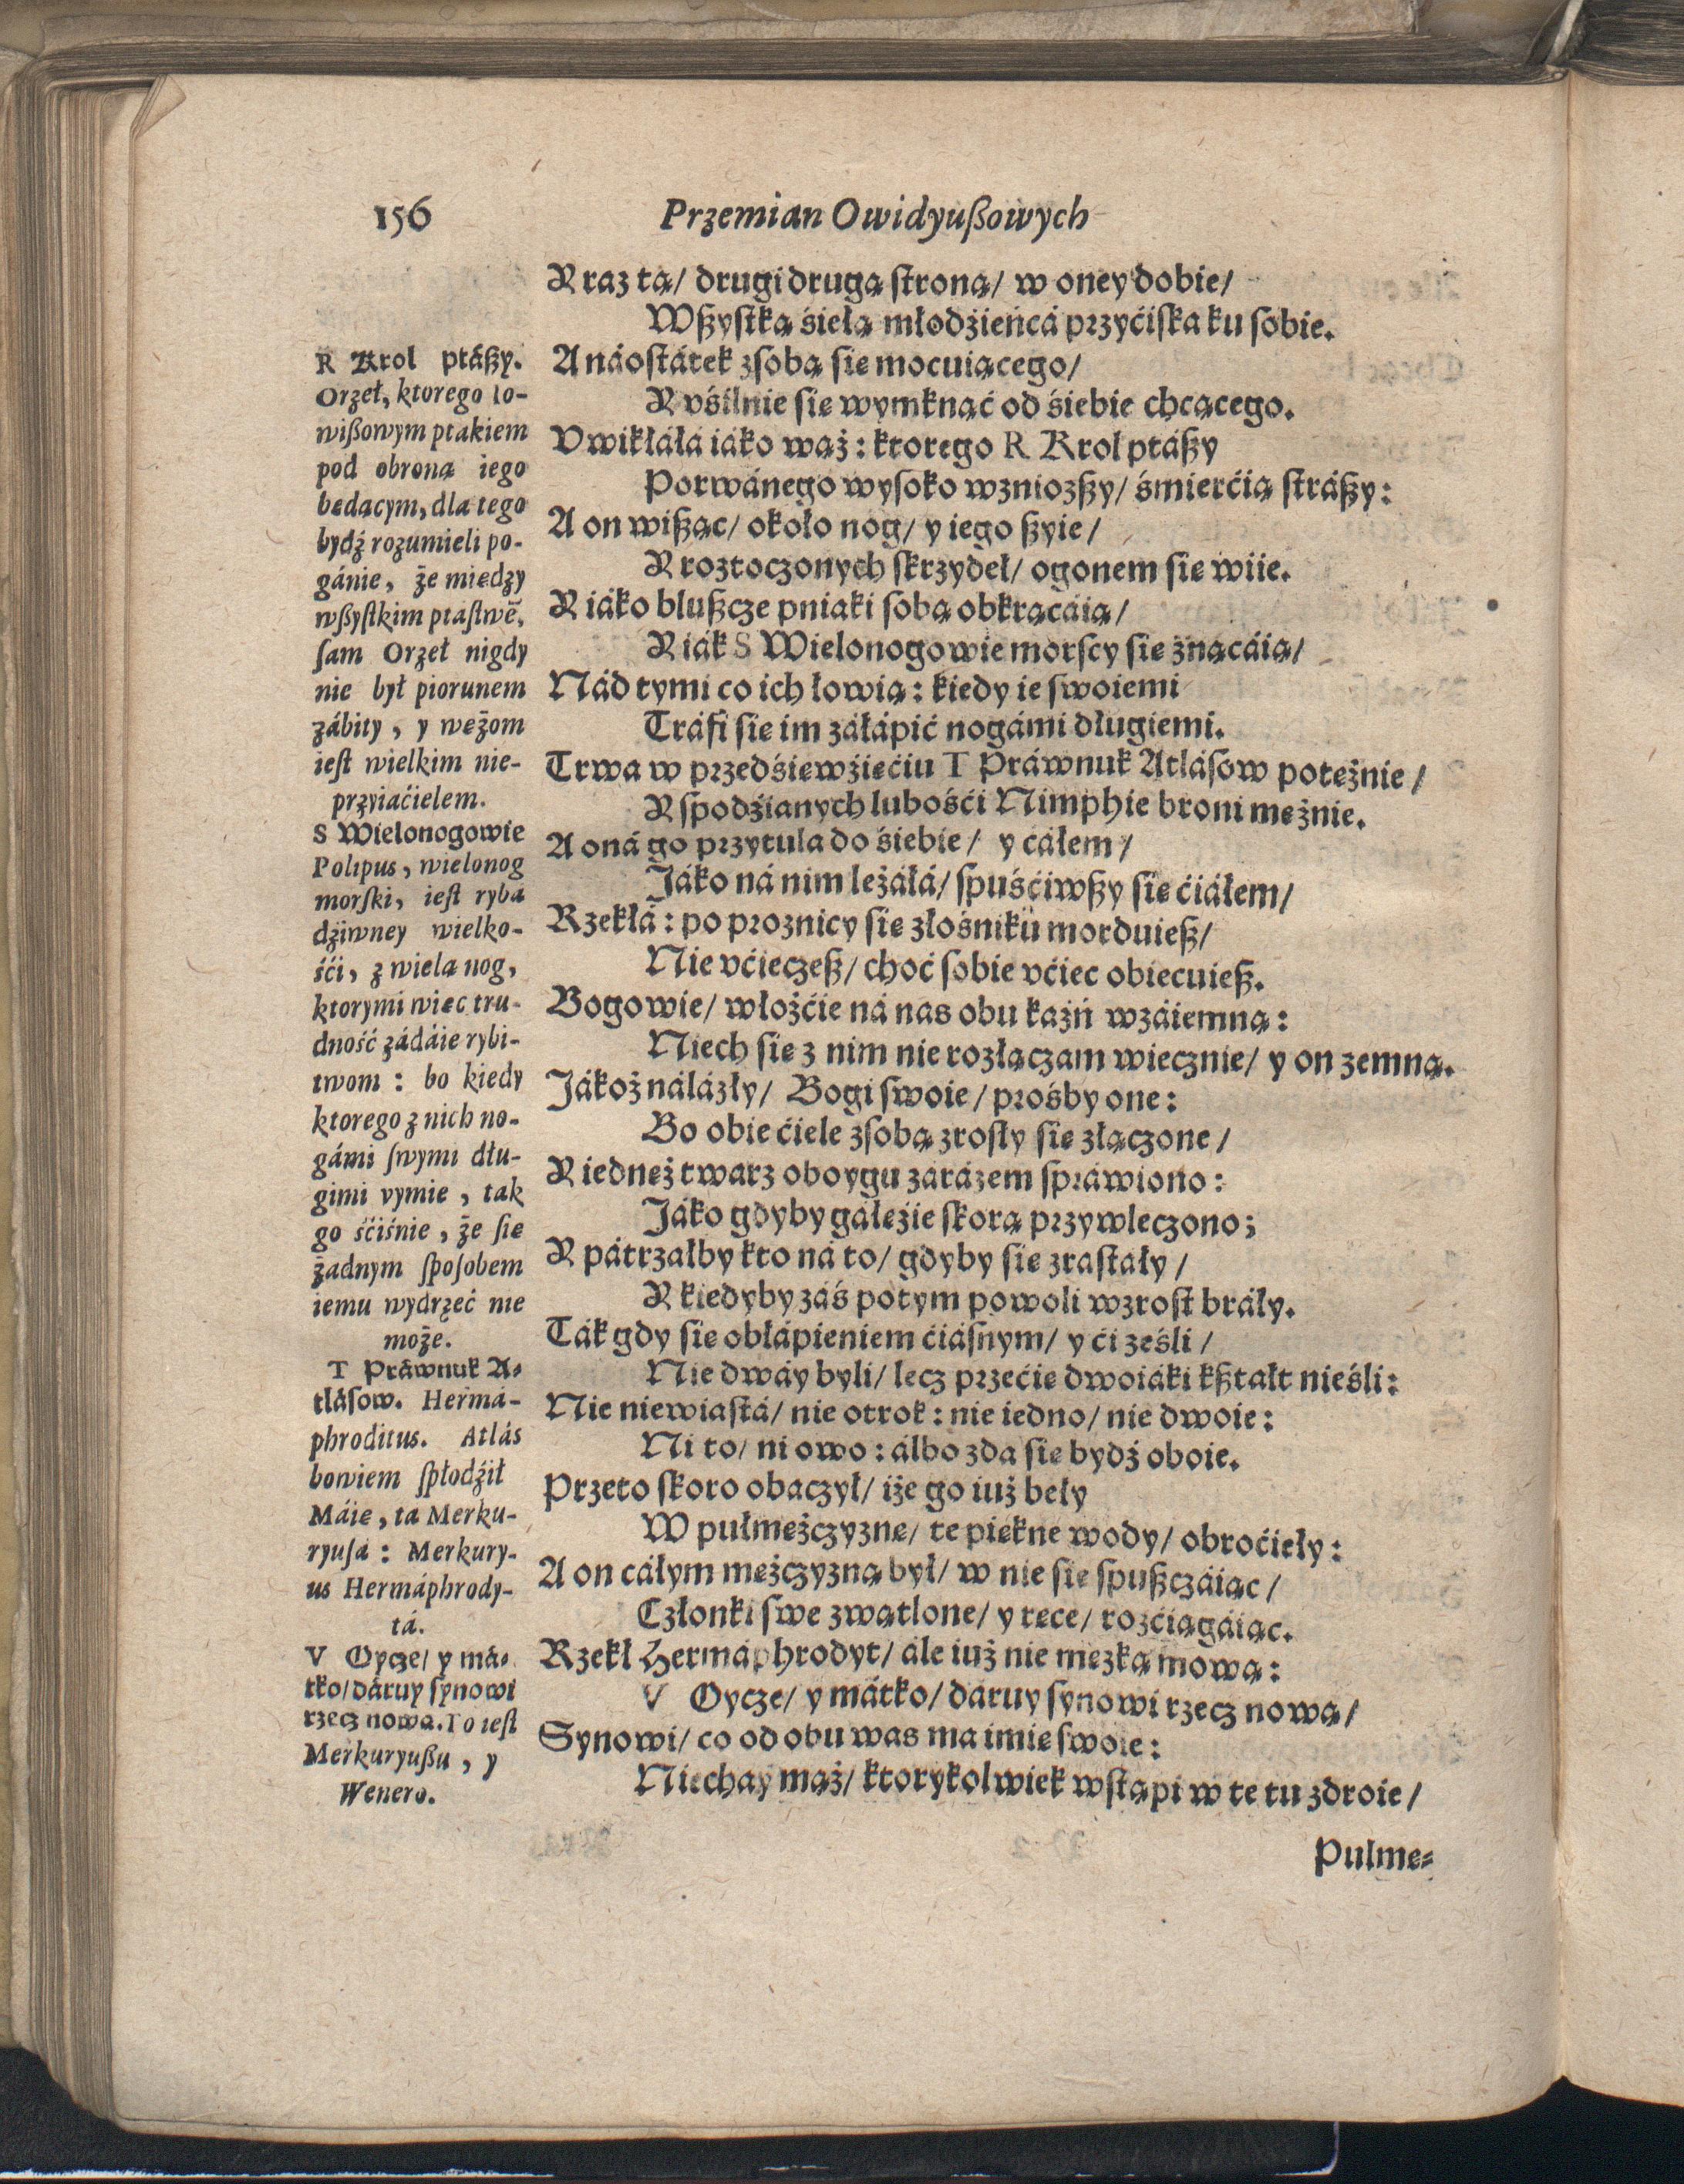 156
Przemian Owidyußowych
Y raz tą/ drugi drugą ſtroną/ w oney dobie/
Wßyſtką śiełą młodźieńcá przyćiſka ku ſobie.
A náoſtátek zſobą ſie mocuiącego/
Y vśilnie ſie wymknąć od śiebie chcącego.
Vwikłáłá iáko wąż: ktorego R Krol ptáßy
Porwánego wyſoko wzniozßy/ śmierćią ſtráßy:
A on wißąc/ około nog/ y iego ßyie/
Y roztoczonych ſkrzydeł/ ogonem ſie wiie.
Y iáko blußcze pniaki ſobą obkrącáią/
Y iák S Wielonogowie morſcy ſie znącáią/
Nád tymi co ich łowią: kiedy ie ſwoiemi
Tráfi ſie im záłápić nogámi długiemi.
Trwa w przedśiewźięćiu T Práwnuk Atláſow potężnie/
Y ſpodźianych lubośći Nimphie broni mężnie.
A oná go przytula do śiebie/ y cáłem/
Jáko ná nim leżáłá/ ſpuśćiwßy ſie ćiáłem/
Rzekłá: po proznicy ſie złośniku morduieß/
Nie vćieczeß/ choć ſobie vćiec obiecuieß.
Bogowie/ włożćie ná nas obu kaźń wzáiemną:
Niech ſie z nim nie rozłączam wiecznie/ y on zemną.
Jákoż nálázły/ Bogi ſwoie/ prośby one:
Bo obie ćiele zſobą zroſły ſie złączone/
Y iednęż twarz oboygu zárázem ſpráwiono:
Jáko gdyby gáłęźie ſkorą przywleczono;
Y pátrzałby kto ná to/ gdyby ſie zraſtały/
Y kiedyby záś potym powoli wzroſt bráły.
Ták gdy ſie obłápieniem ćiáſnym/ y ći ześli/
Nie dwáy byli/ lecz przećie dwoiáki kßtałt nieśli:
Nie niewiaſtá/ nie otrok: nie iedno/ nie dwoie:
Ni to/ ni owo: álbo zda ſie bydź oboie.
Przeto ſkoro obaczył/ iże go iuż beły
W pułmężczyznę/ te piękne wody/ obroćieły:
A on cáłym mężczyzną był/ w nie ſie ſpußczáiąc/
Członki ſwe zwątlone/ y ręce/ rozćiągáiąc.
Rzekł Hermáphrodyt/ ále iuż nie męzką mową:
V Oycze/ y mátko/ dáruy ſynowi rzecz nową/
Synowi/ co od obu was ma imię ſwoie:
Niechay mąż/ ktorykolwiek wſtąpi w te tu zdroie/
Pulmę-
R Krol ptáßy.
Orzeł, ktorego Io-
wißowym ptakiem
pod obroną iego
będącym, dla tego
bydź rozumieli po-
gánie, że między
wßyſtkim ptáſtwē,
ſam Orzeł nigdy
nie był piorunem
zábity, y wężom
ieſt wielkim nie-
przyiaćielem.
S Wielonogowie
Polipus, wielonog
morſki, ieſt ryba
dźiwney wielko-
śći, z wielą nog,
ktorymi więc tru-
dność zádáie rybi-
twom: bo kiedy
ktorego z nich no-
gámi ſwymi dłu-
gimi vymie, tak
go śćiśnie, że ſie
żadnym ſpoſobem
iemu wydrzeć nie
może.
T Práwnuk A-
tláſow. Hermá-
phroditus. Atlás
bowiem ſpłodźił
Máię, ta Merku-
ryuſá: Merkury-
us Hermáphrody-
tá.
V Oycze/ y má-
tko/ dáruy ſynowi
rzecz nową. To ieſt
Merkuryußu, y
Wenero.